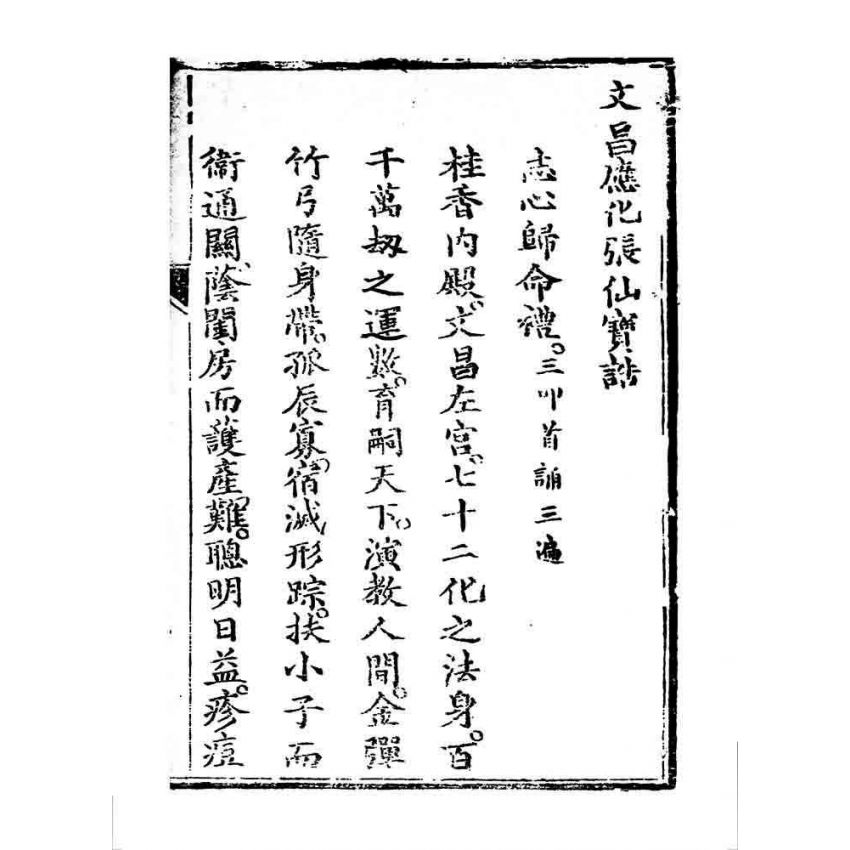 文昌應化張仙寶誥
志心歸命禮。三叩首誦三遍
桂香內殿。文昌左宮。七十二化之法身。百
千萬刼之運數。育嗣天下。演教人間。金彈
竹弓隨身帶。孤辰寡宿滅形踪。扶小子而
衛通關。蔭閨房而護產難。聰明日益。疹痘